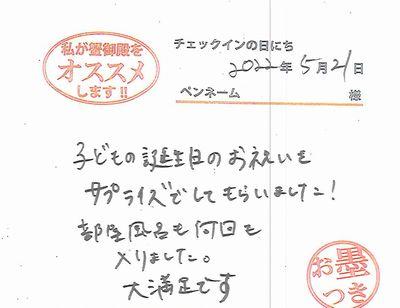 私が蟹御殿を
オススメ
します!!
チェックインの日にち
2022年5月21日
ペンネーム 様
子どもの誕生日のお祝いも
サプライズでしてもらいました!
部屋風呂も何回も
入りました。
大満足です
お墨
つき